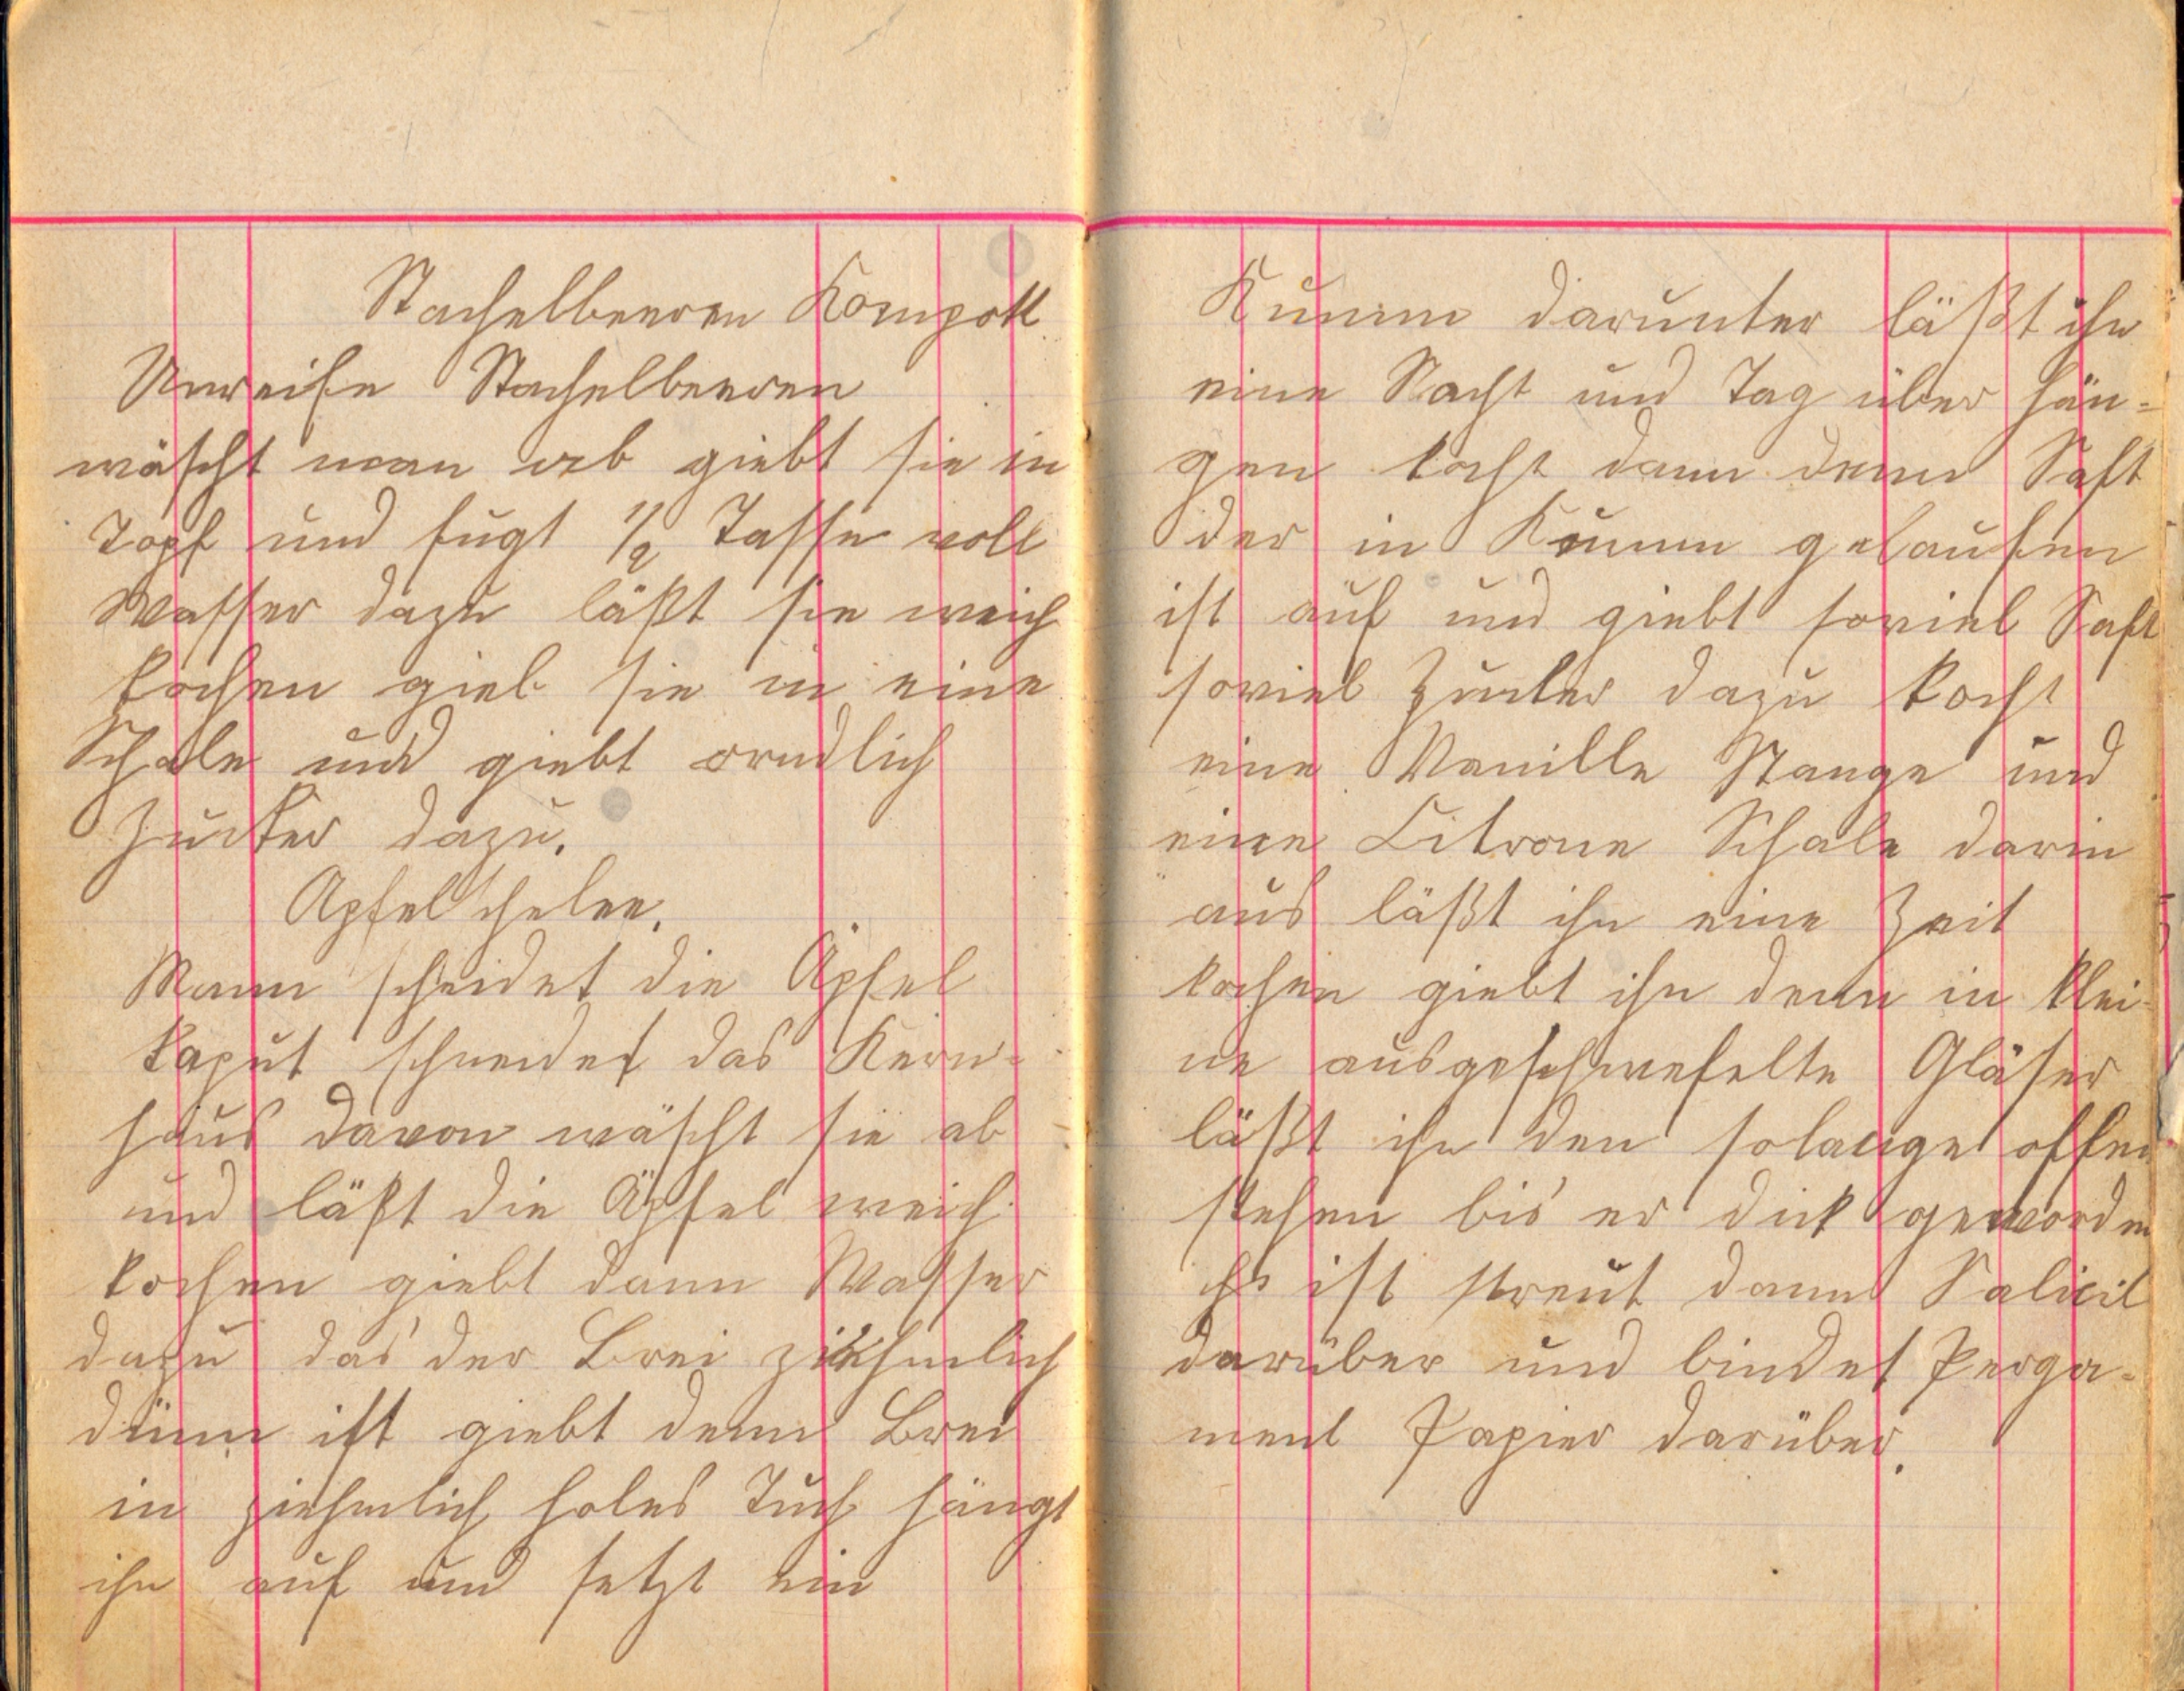 Stachelbeeren Kompott
Unreife Stachelbeeren
wäscht man ab giebt sie in
Topf und fugt 1/2 Tasse voll
Wasser dazu läßt sie weich
kochen gieb sie in eine
Schale und giebt orndlich
Zucker dazu.
Apfel schelee.
Mann scheidet die Äpfel
kaput schneidet das Kern-
haus davon wäscht sie ab
und läßt die Äpfel weich
kochen giebt dann Wasser
dazu das der Brei ziehmlich
dünn ist giebt denn Brei
in ziehmlich holes Tuch hängt
ihn auf und setzt ein
Kumm darunter läßt ihn
eine Nacht und Tag über hän-
gen kocht dann denn Saft
der in Kumm gelaufen
ist auf und giebt soviel Saft
soviel Zucker dazu kocht
eine Vanille Stange und
eine Citrone Schale darin
aus läßt ihn eine Zeit
kochen giebt ihn denn in klei-
ne ausgeschwefelte Gläser
läßt ihn den solange offen
stehen bis er dick geworden
ist streut dann Salicil
darüber und bindet Perga-
ment Papier darüber.